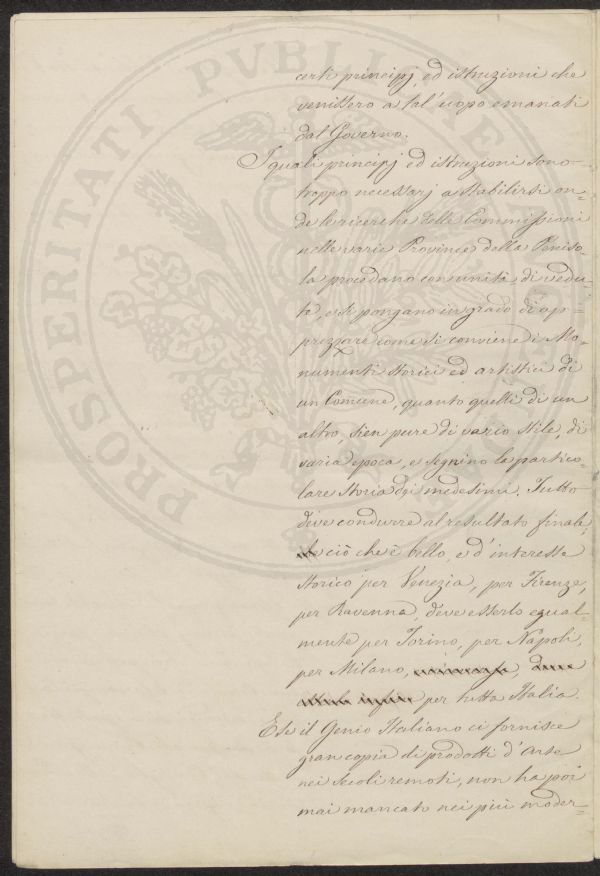 PROSPERITATI PVBLICAE
certi principj, ed istruzioni che
venissero a tal' uopo emanati
dal Governo.
I quali principj ed istruzioni sono
troppo necessarj a stabilirsi on=
de le ricerche delle Commissioni
nelle varie Province della Peniso=
la procedano con unità di vedu=
te, e si pongano in grado di ap=
prezzare come si conviene i Mo=
numenti storici ed artistici di
un Comune, quanto quelli di un
altro, sien pure di vario stile, di
varia epoca, e segnino la partico=
lare storia dei medesimi. Tutto
deve condurre al resultato finale,
che ciò che è bello, e d'interesse
storico per Venezia, per Firenze,
per Ravenna, deve esserlo egual=
mente per Torino, per Napoli,
per Milano, per tutta Italia.
E se il Genio Italiano ci fornisce
gran copia di prodotti d'Arte
nei secoli remoti, non ha poi
mai mancato nei più moder=